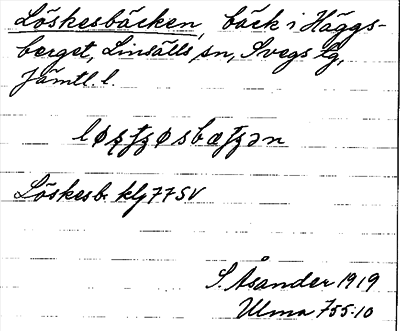 Löskesbäcken, bäck i Häggs-
berget, Linsälls sn, Svegs lg,
Jämtl. l.
Löskesb. klj 77 SV
S. Åsander 1919
Ulma 755:10